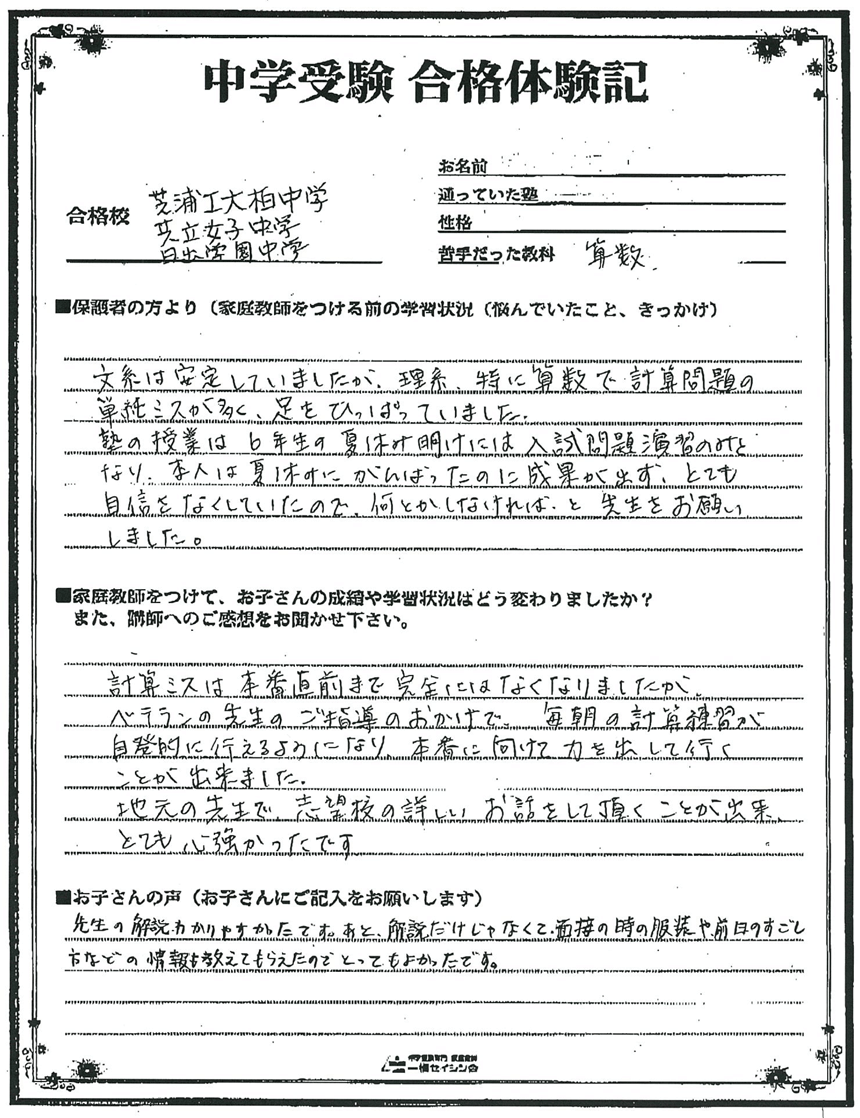 中学受験 合格体験記
お名前
通っていた塾
性格
苦手だった教科 算数
合格校 芝浦工大柏中学
共立女子中学
日出学園中学
■保護者の方より（家庭教師をつける前の学習状況（悩んでいたこと、きっかけ）
文系は安定していましたが、理系、特に算数で計算問題の
単純ミスが多く、足をひっぱっていました。
塾の授業は6年生の夏休み明けには入試問題演習のみと
なり、本人は夏休みにがんばったのに成果が出ず、とても
自信をなくしていたので、何とかしなければ、と先生をお願い
しました。
■家庭教師をつけて、お子さんの成績や学習状況はどう変わりましたか？
また、講師へのご感想をお聞かせ下さい。
計算ミスは本番直前まで完全にはなくなりましたが、
ベテランの先生のご指導のおかげで、毎朝の計算練習が
自発的に行えるようになり、本番に向けて力を出して行く
ことが出来ました。
地元の先生で、志望校の詳しいお話をして頂くことが出来、
とても心強かったです
■お子さんの声（お子さんにご記入をお願いします）
先生の解説わかりやすかたです。あと、解説だけじゃなくて、面接の時の服装や前日のすごし
方などの情報も教えてもらえたのでとってもよかったです。
中学受験専門 家庭教師
一橋セイシン会